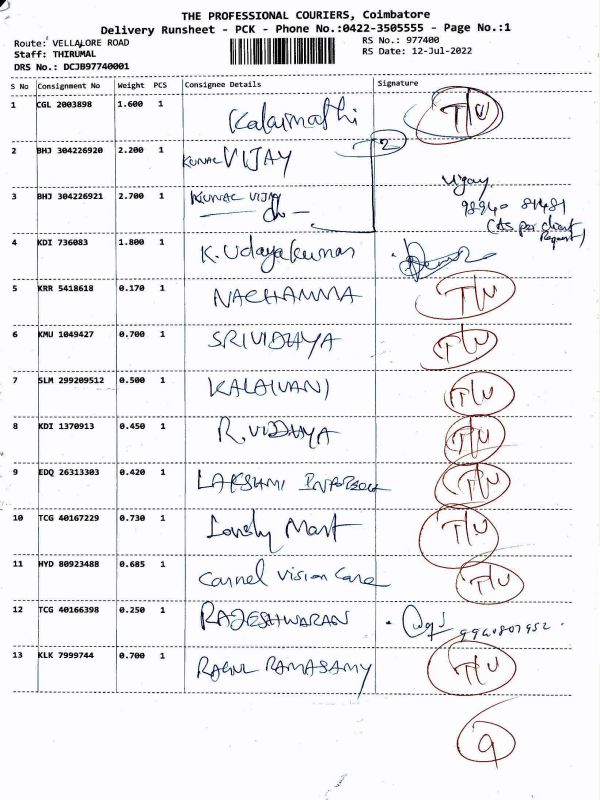 THE PROFESSIONAL COURIERS, Coimbatore
Delivery Runsheet - PCK - Phone No.:0422-3505555 - Page No.:1
Route: VELLALORE ROAD RS No.: 977400
Staff: THIRUMAL RS Date: 12-Jul-2022
DRS No.: DCJB97740001
S No Consignment No Weight PCS Consignee Details Signature
1 CGL 2003898 1.600 1 Kalaimathi T/U
2 BHJ 304226920 2.200 1 KUNAL VIJAY 2
3 BHJ 304226921 2.700 1 KUNAL VIJAY Vijay
98940 81481
(As per client
Request)
4 KDI 736083 1.800 1 K. Udayakumar
5 KRR 5418618 0.170 1 NACHAMMA T/U
6 KMU 1049427 0.700 1 SRIVIDHYA T/U
7 SLM 299209512 0.500 1 KALAIVANI T/U
8 KDI 1370913 0.450 1 R. VIDHYA T/U
9 EDQ 26313303 0.420 1 LAKSHMI T/U
10 TCG 40167229 0.730 1 Lovely Mart T/U
11 HYD 80923488 0.685 1 Carnel Vision Care T/U
12 TCG 40166398 0.250 1 RAJESHWARAN 9940807952
13 KLK 7999744 0.700 1 RAHUL RAMASAMY T/U
9